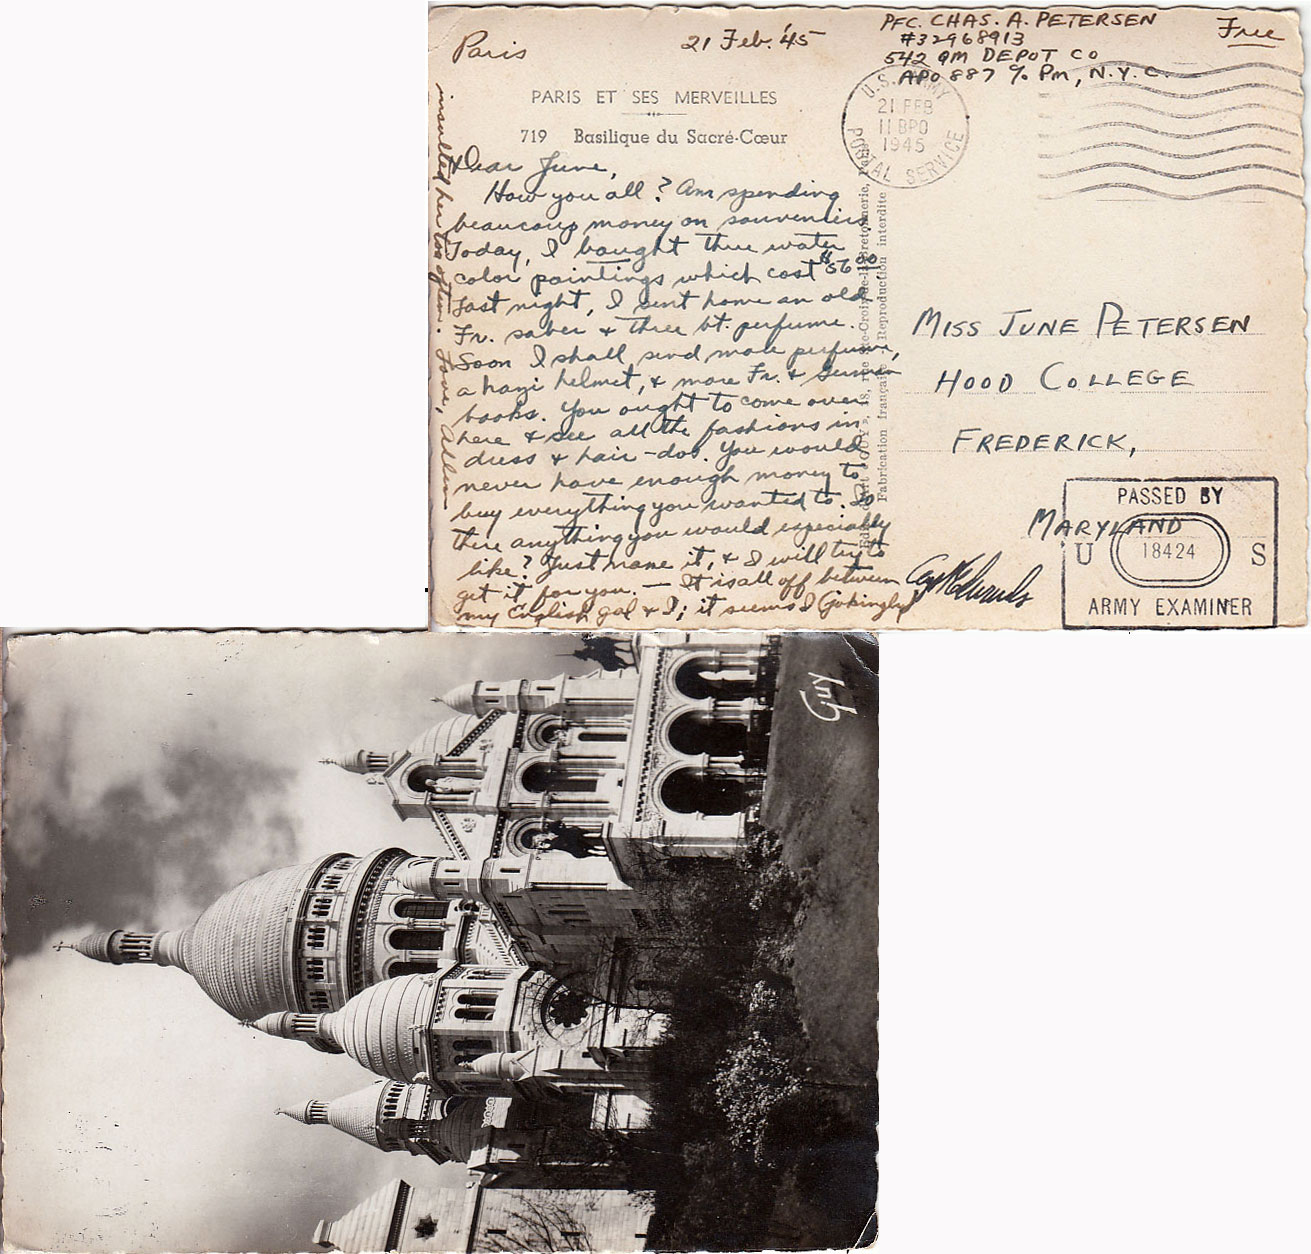 Paris
21 Feb. '45
PFC. CHAS. A. PETERSEN
#32968913
542 QM DEPOT CO
APO 887 % PM, N.Y.C.
Free
PARIS ET SES MERVEILLES
719 Basilique du Sacré-Cœur
U.S. ARMY
21 FEB
11 BPO
1945
POSTAL SERVICE
Dear June,
How you all? Am spending
beaucoup money on souveniers.
Today, I bought three water
color paintings which cost $56.00
Last night, I sent home an old
Fr. saber & three bt. perfume.
Soon I shall send more perfume,
a nazi helmet, & more Fr. & German
books. You ought to come over
here & see all the fashions in
dress & hair-dos. You would
never have enough money to
buy everything you wanted to. Is
there anything you would especially
like? Just name it, & I will try to
get it for you. — It is all off between
my English gal & I; it seems I (jokingly)
insulted her too often. Love, Allen
18, rue Ste-Croix-de-la-Bretonnerie, Paris
Fabrication française - Reproduction interdite
MISS JUNE PETERSEN
HOOD COLLEGE
FREDERICK,
MARYLAND
PASSED BY
U 18424 S
ARMY EXAMINER
Guy